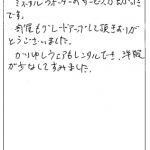 ミネラルウォーターのサービスが助かった
です。
お部屋もグレードアップして頂きありが
とうございました。
かりゆしウェアもレンタルでき、洋服
が少なくてすみました。